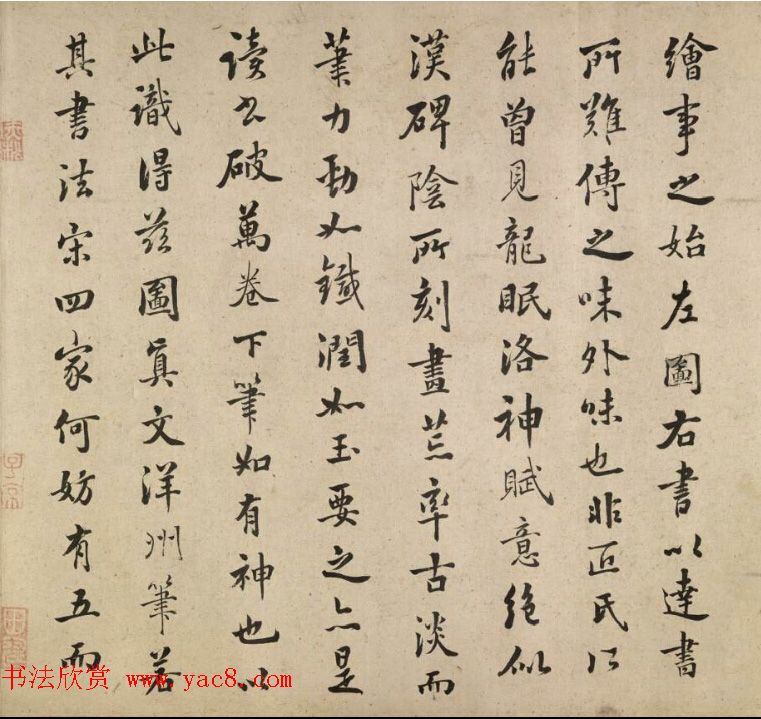 繪事之始左圖右書以達書
所難傳之味外味也非匠氏以
能曾見龍眠洛神賦意絕似
漢碑陰所刻畫荒率古淡而
筆力勁如鐵潤如玉要之亦是
读书破萬卷下筆如有神也以
此識得茲圖真文洋州筆若
其書法宋四家何妨有五而
书法欣赏 www.yac8.com